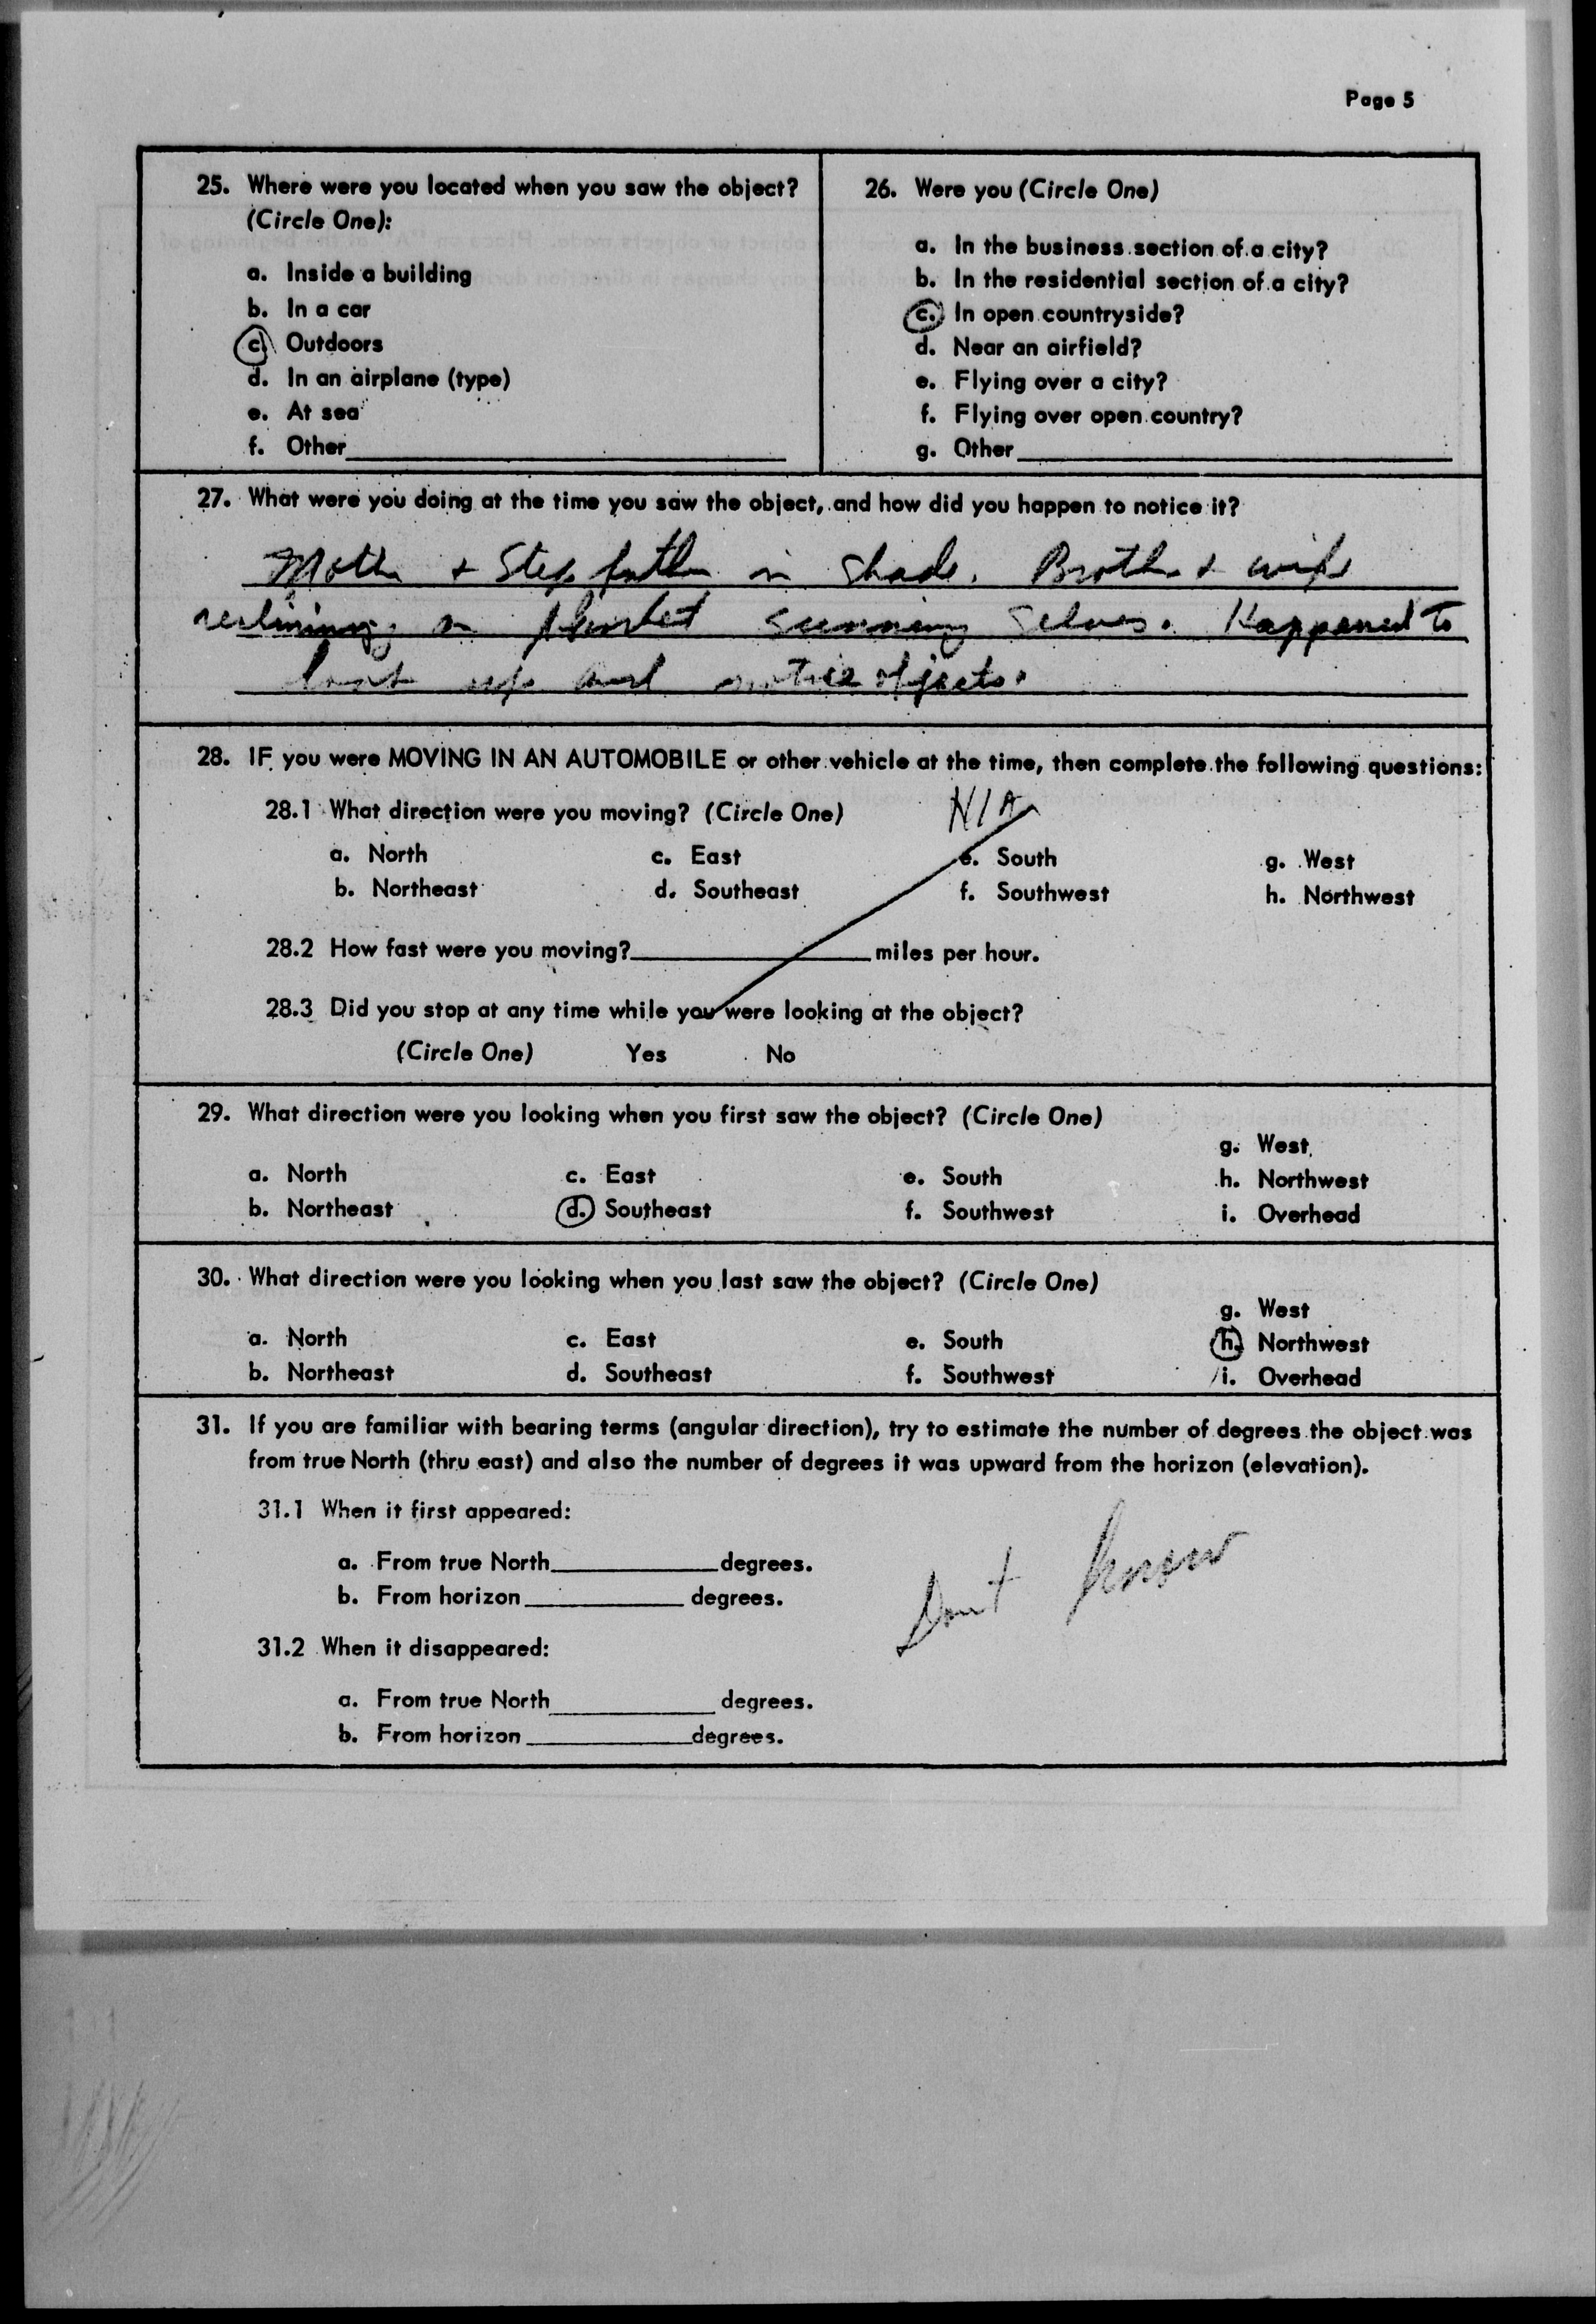 Page 5
25. Where were you located when you saw the object?
(Circle One):
a. Inside a building
b. In a car
c. Outdoors
d. In an airplane (type)
e. At sea
f. Other
26. Were you (Circle One)
a. In the business section of a city?
b. In the residential section of a city?
c. In open countryside?
d. Near an airfield?
e. Flying over a city?
f. Flying over open country?
g. Other
27. What were you doing at the time you saw the object, and how did you happen to notice it?
Mother + Stepfather in shade. Brother + wife
reclining on blanket sunning selves. Happened to
look up and notice objects.
28. IF you were MOVING IN AN AUTOMOBILE or other vehicle at the time, then complete the following questions:
28.1 What direction were you moving? (Circle One) N/A
a. North c. East e. South g. West
b. Northeast d. Southeast f. Southwest h. Northwest
28.2 How fast were you moving? miles per hour.
28.3 Did you stop at any time while you were looking at the object?
(Circle One) Yes No
29. What direction were you looking when you first saw the object? (Circle One)
g. West
a. North c. East e. South h. Northwest
b. Northeast d. Southeast f. Southwest i. Overhead
30. What direction were you looking when you last saw the object? (Circle One)
g. West
a. North c. East e. South h. Northwest
b. Northeast d. Southeast f. Southwest i. Overhead
31. If you are familiar with bearing terms (angular direction), try to estimate the number of degrees the object was
from true North (thru east) and also the number of degrees it was upward from the horizon (elevation).
31.1 When it first appeared:
a. From true North degrees.
b. From horizon degrees.
Don't know
31.2 When it disappeared:
a. From true North degrees.
b. From horizon degrees.